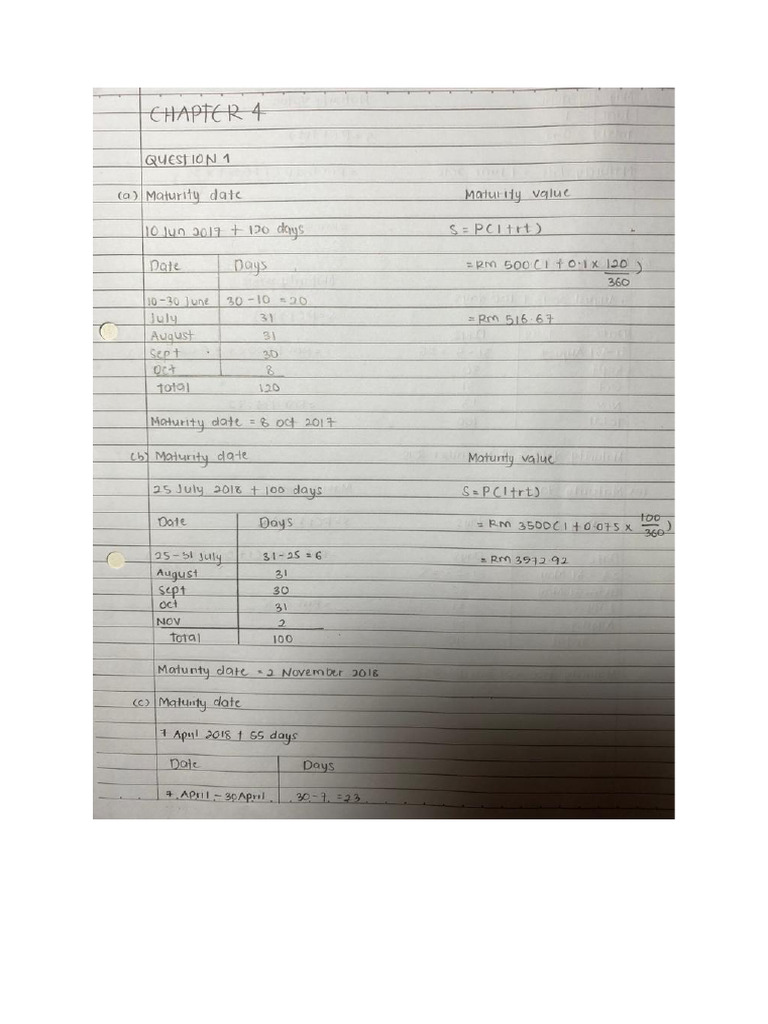 CHAPTER 4
QUESTION 1
(a) Maturity date Maturity value
10 Jun 2017 + 120 days S = P(1+rt)
Date Days = Rm 500 (1 + 0.1 x 120/360)
10-30 June 30-10 = 20
July 31 = Rm 516.67
August 31
Sept 30
Oct 8
Total 120
Maturity date = 8 Oct 2017
(b) Maturity date Maturity value
25 July 2018 + 100 days S = P(1+rt)
Date Days = Rm 3500 (1 + 0.075 x 100/360)
25-31 July 31-25 = 6 = Rm 3572.92
August 31
Sept 30
Oct 31
Nov 2
Total 100
Maturity date = 2 November 2018
(c) Maturity date
7 April 2018 + 55 days
Date Days
7 April - 30 April 30-7 = 23